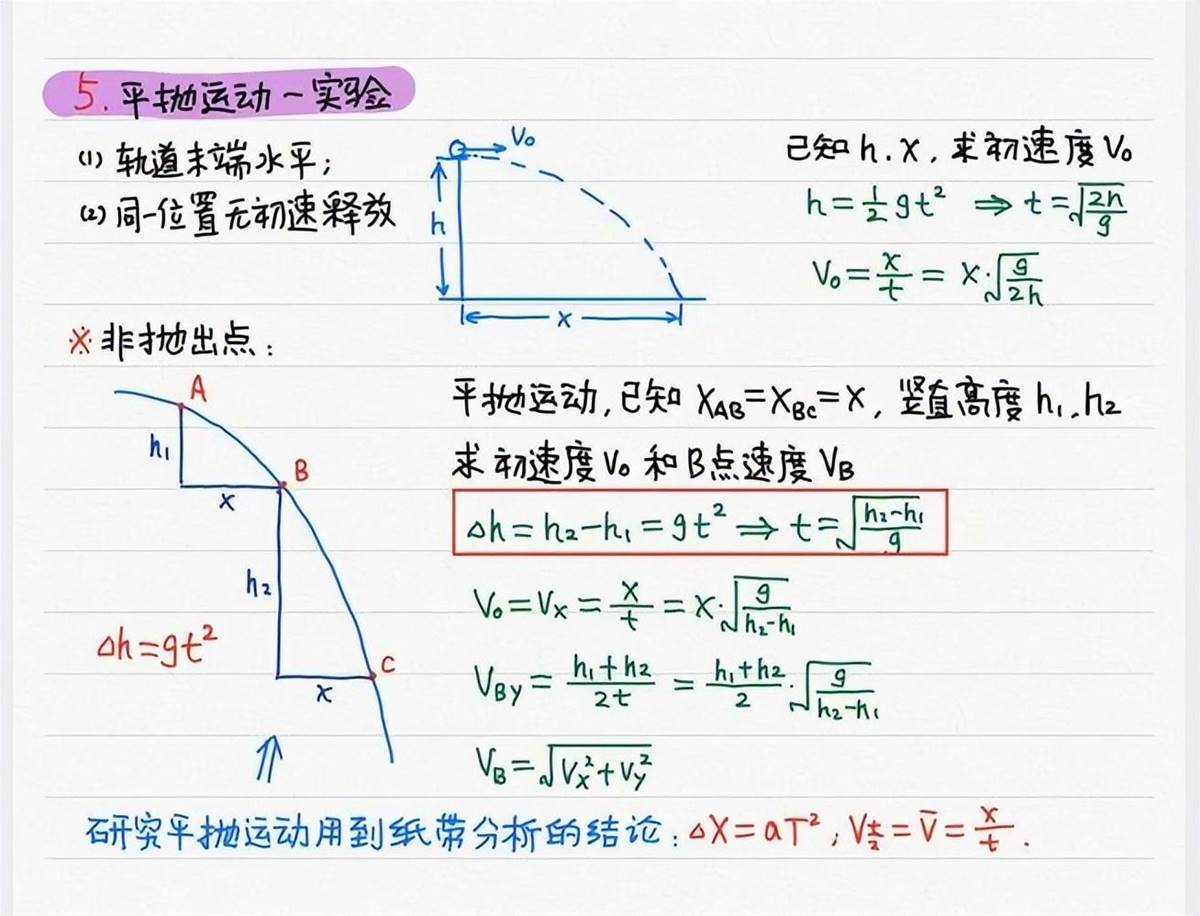 5. 平抛运动-实验
(1) 轨道末端水平;
(2) 同一位置无初速释放
V₀
h
x
已知 h.x, 求初速度 V₀
h=½gt² ⇒ t=√(2h/g)
V₀=x/t=x·√(g/2h)
※ 非抛出点:
A
h₁
x
B
h₂
Δh=gt²
x
C
平抛运动,已知 X_AB=X_BC=X, 竖直高度 h₁,h₂
求初速度V₀ 和B点速度 V_B
Δh=h₂-h₁=gt² ⇒ t=√((h₂-h₁)/g)
V₀=Vₓ=x/t=x·√(g/(h₂-h₁))
V_By=(h₁+h₂)/2t=(h₁+h₂)/2·√(g/(h₂-h₁))
V_B=√(Vₓ²+V_y²)
研究平抛运动用到纸带分析的结论: ΔX=aT², V_(t/2)=V̄=x/t.